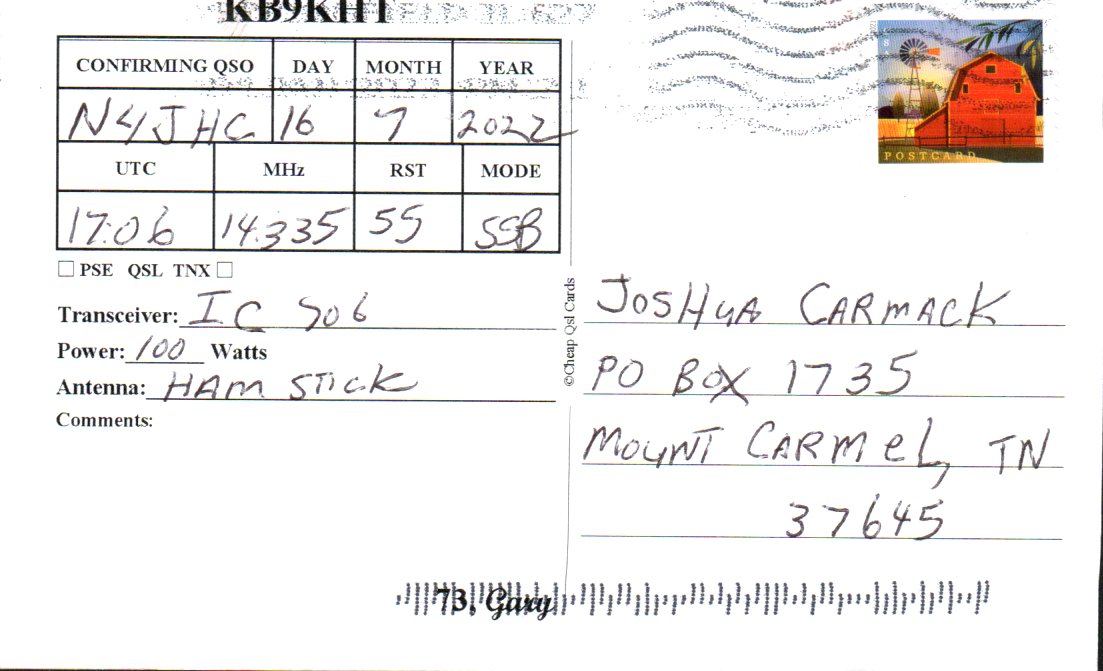 CONFIRMING QSO DAY MONTH YEAR
N4JHC 16 7 2022
UTC MHz RST MODE
17:06 14.335 55 SSB
PSE QSL TNX
Transceiver: IC 706
Power: 100 Watts
Antenna: HAM STICK
Comments:
©Cheap Qsl Cards
POSTCARD
JOSHUA CARMACK
PO BOX 1735
MOUNT CARMEL, TN
37645
73, Gary